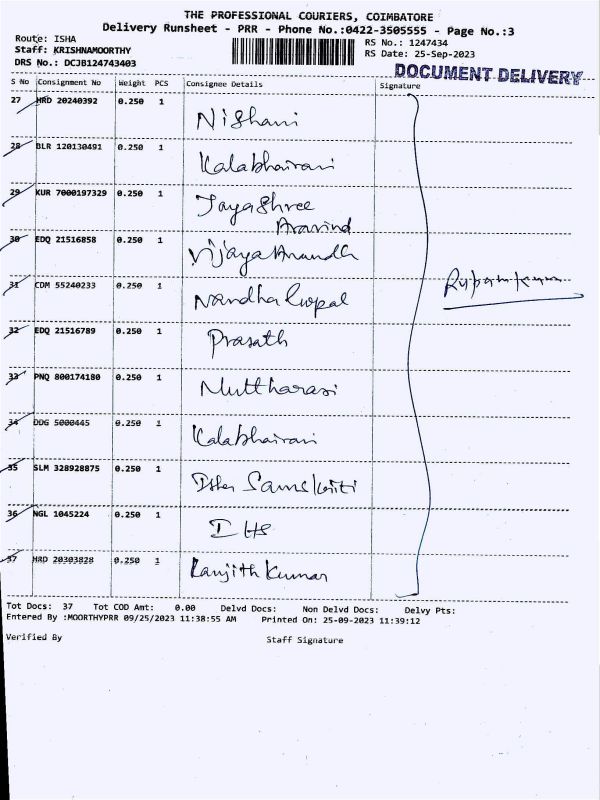 THE PROFESSIONAL COURIERS, COIMBATORE
Delivery Runsheet - PRR - Phone No.:0422-3505555 - Page No.:3
Route: ISHA
Staff: KRISHNAMOORTHY
DRS No.: DCJB124743403
RS No.: 1247434
RS Date: 25-Sep-2023
DOCUMENT DELIVERY
S No Consignment No Weight PCS Consignee Details Signature
27 HRD 20240392 0.250 1 Nishani
28 BLR 120130491 0.250 1 Kalabhairavi
29 KUR 7000197329 0.250 1 Jayashree
Aravind
30 EDQ 21516858 0.250 1 Vijaya Anandh
31 CDM 55240233 0.250 1 Nandha Gopal
32 EDQ 21516789 0.250 1 Prasath
33 PNQ 800174180 0.250 1 Muttharasi
34 DDG 5000445 0.250 1 Kalabhairavi
35 SLM 328928875 0.250 1 Samskriti
36 NGL 1045224 0.250 1 IHS
37 HRD 20303828 0.250 1 Ranjith Kumar
Tot Docs: 37 Tot COD Amt: 0.00 Delvd Docs: Non Delvd Docs: Delvy Pts:
Entered By :MOORTHYPRR 09/25/2023 11:38:55 AM Printed On: 25-09-2023 11:39:12
Verified By Staff Signature